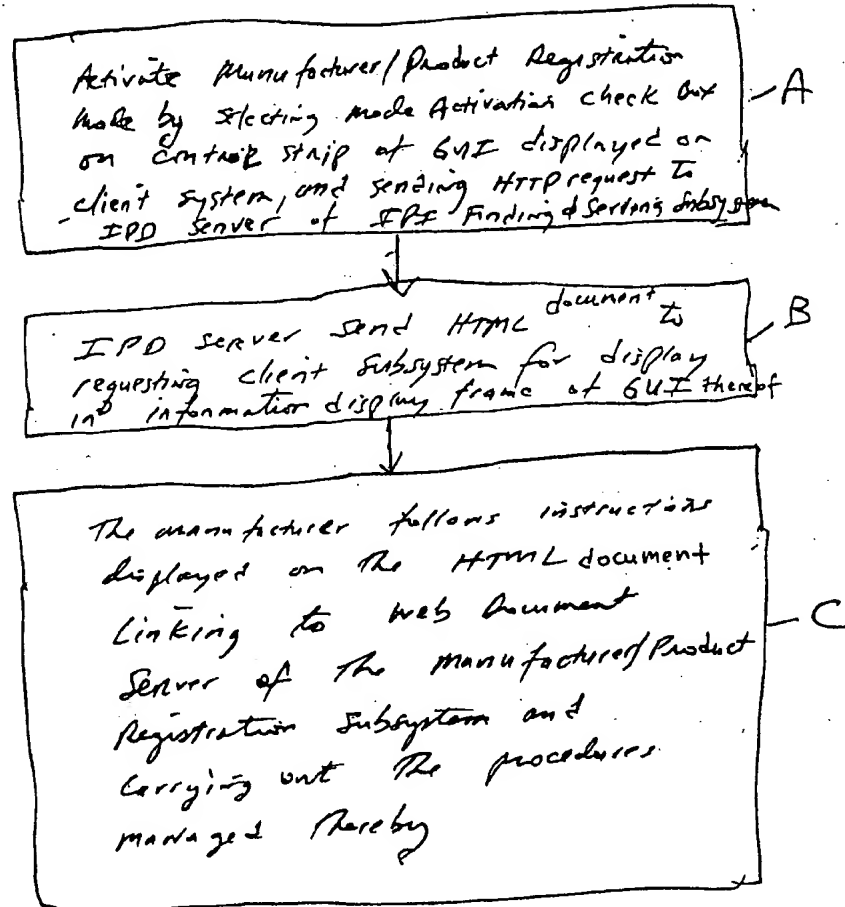 Activate Manufacturer/Product Registration
Mode by selecting Mode Activation check box
on control strip of GUI displayed on
client system, and sending HTTP request to
IPD server of IPI Finding & Serving Subsystem
A
IPD server send HTML document to
requesting client subsystem for display
in information display frame of GUI thereof
B
The manufacturer follows instructions
displayed on the HTML document
Linking to web Document
Server of the manufacturer/Product
Registration Subsystem and
Carrying out the procedures
managed thereby
C